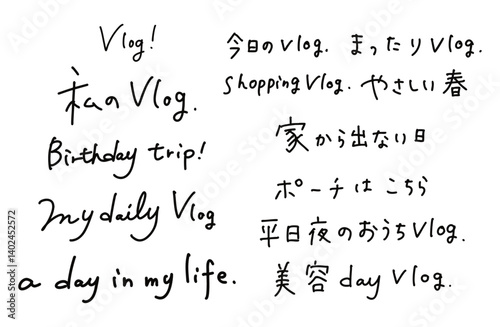 Vlog!
私のVlog.
Birthday trip!
my daily Vlog
a day in my life.
今日のvlog. まったりVlog.
shopping Vlog. やさしい春
家から出ない日
ポーチは こちら
平日夜のおうちVlog.
美容 day Vlog.
Adobe Stock | #1402452572